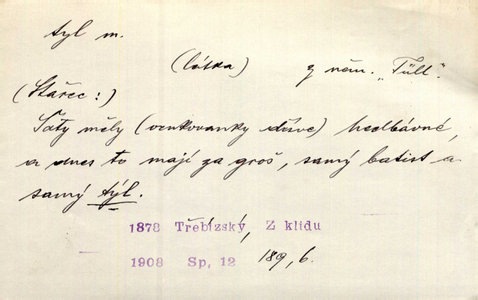 tyl m.
(látka) z něm. „Tüll".
(Stařec:)
Šaty měly (venkovanky dříve) hedbávné,
a dnes to mají za groš, samý batist a
samý týl.
1878 Třebízský, Z klidu
1908 Sp, 12 189, 6.